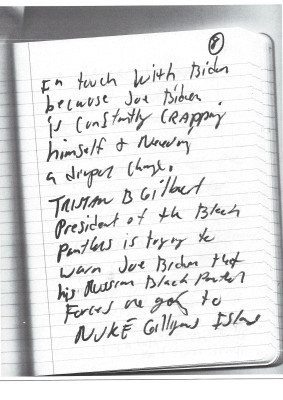 8
In touch with Biden
because Joe Biden
is constantly CRAPPING
himself & Needing
a diaper change.
TRISTAN B Gilbert
President of the Black
Panthers is trying to
warn Joe Biden that
his Russian Black Panther
Forces are going to
NUKE Gilligans Island